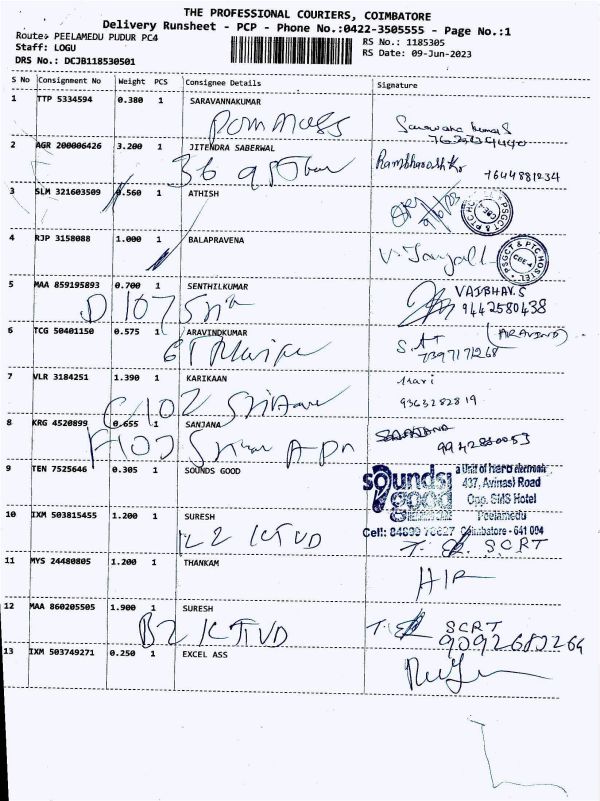 THE PROFESSIONAL COURIERS, COIMBATORE
Delivery Runsheet - PCP - Phone No.:0422-3505555 - Page No.:1
Route: PEELAMEDU PUDUR PC4
RS No.: 1185305
Staff: LOGU
RS Date: 09-Jun-2023
DRS No.: DCJB118530501
S No Consignment No Weight PCS Consignee Details Signature
1 TTP 5334594 0.380 1 SARAVANNAKUMAR
2 AGR 200006426 3.200 1 JITENDRA SABERWAL
36
7644881234
3 SLM 321603509 0.560 1 ATHISH
PSGCT & PTC HOSTEL
4 RJP 3158088 1.000 1 BALAPRAVENA
PSGCT & PTC HOSTEL
CBE-4
5 MAA 859195893 0.700 1 SENTHILKUMAR
VAIBHAV.S
D 107
9442580438
6 TCG 50401150 0.575 1 ARAVINDKUMAR
(ARAVIND)
7397171268
7 VLR 3184251 1.390 1 KARIKAAN
Hari
C102
9363282819
8 KRG 4520899 0.655 1 SANJANA
SANJANA
9942860053
9 TEN 7525646 0.305 1 SOUNDS GOOD
sounds good
a Unit of hero electronic
437, Avinasi Road
Opp. SMS Hotel
Peelamedu
Coimbatore - 641 004
10 IXM 503815455 1.200 1 SURESH
L2 KTVD
SCRT
11 MYS 24480805 1.200 1 THANKAM
12 MAA 860205505 1.900 1 SURESH
B2 KTVD
SCRT
9092680266
13 IXM 503749271 0.250 1 EXCEL ASS